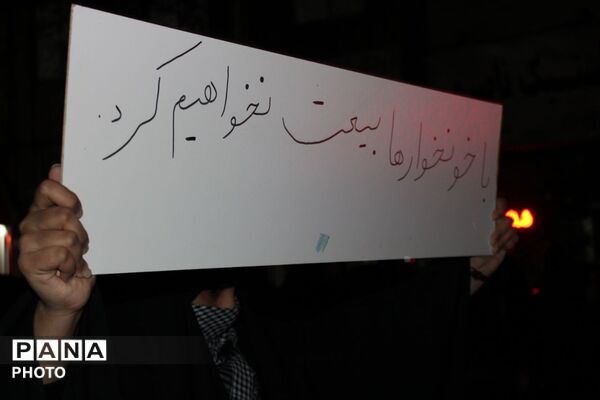 با خونخوارها بیعت نخواهیم کرد.
PANA
PHOTO